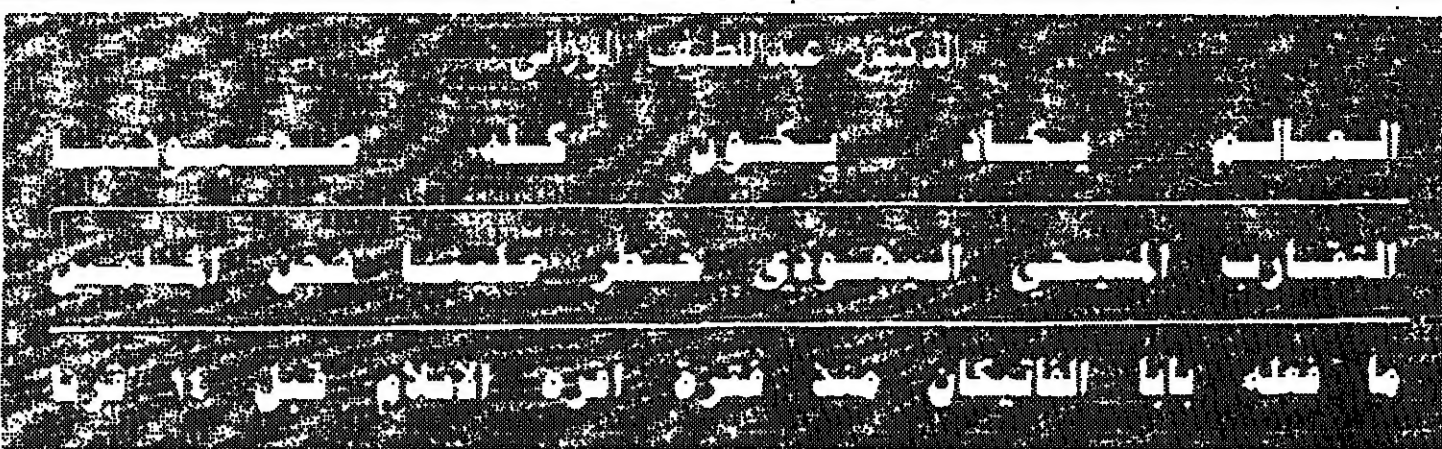 الدكتور عبداللطيف
العالم يكاد يكون كله
التقارب المسيحي اليهودي خطر علينا نحن المسلمين
ما فعله بابا الفاتيكان منذ فترة اقره الاسلام قبل ١٤ قرنا